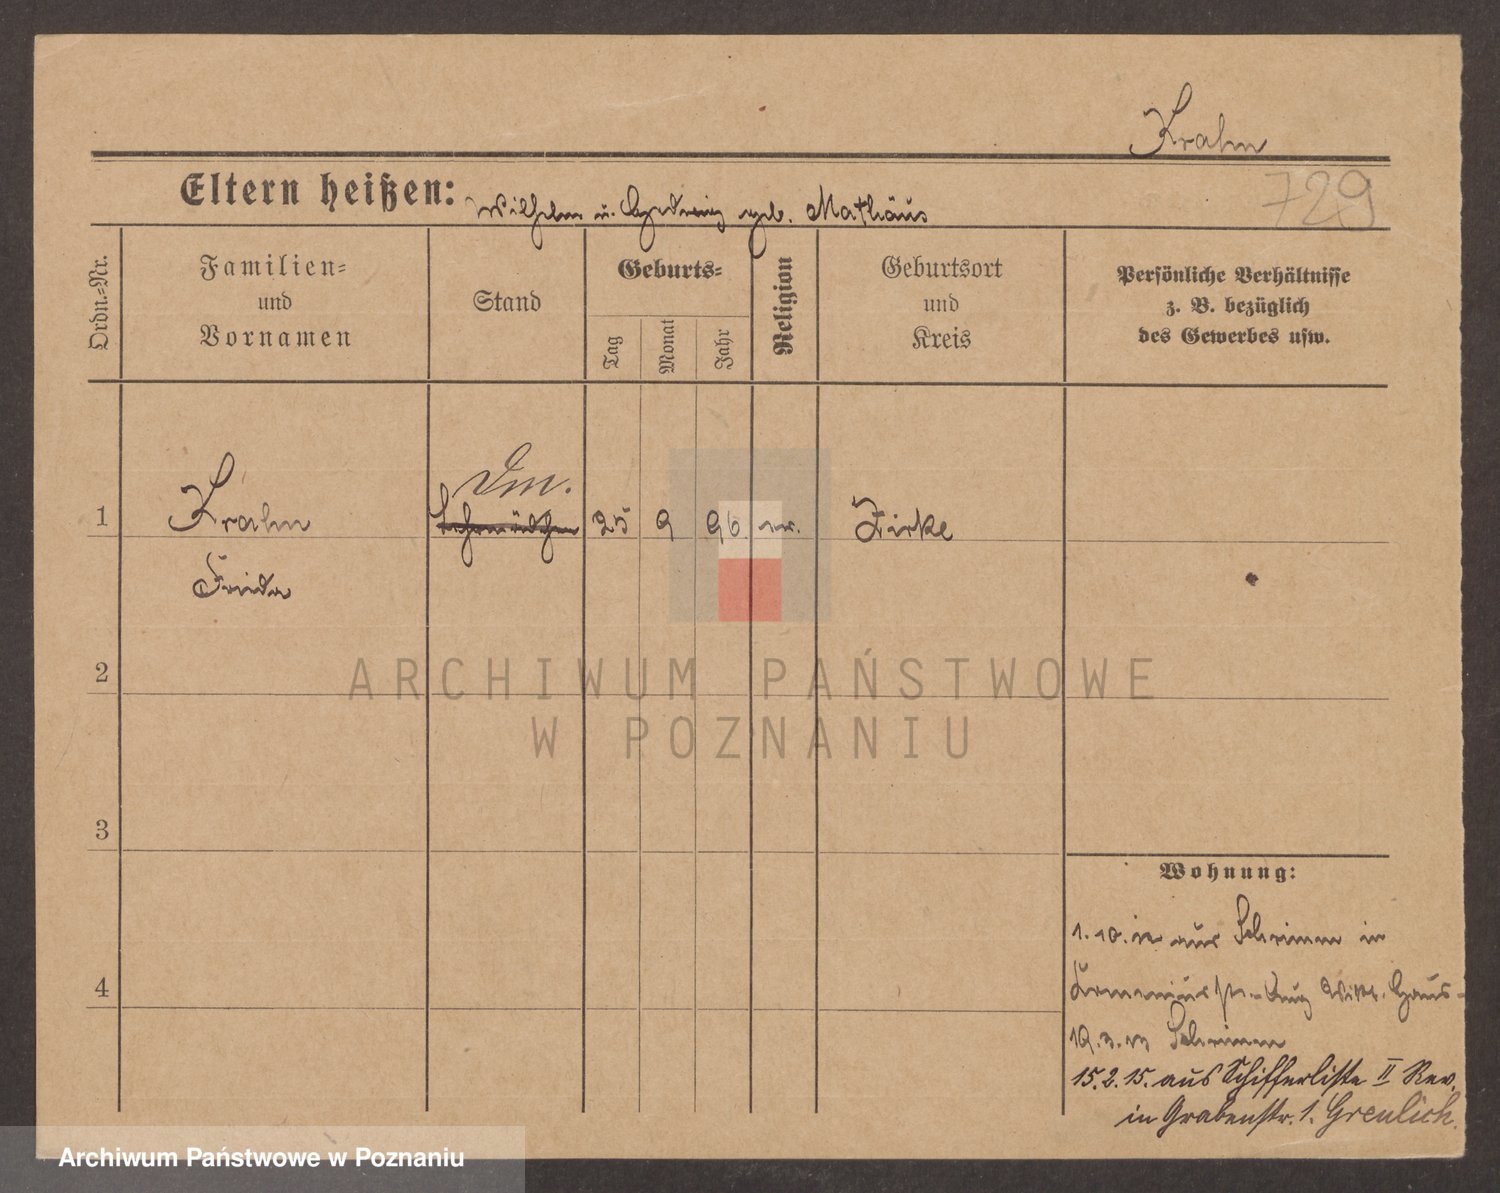 Krahn
Eltern heißen: Wilhelm u. Hedwig geb. Mathäus
729
Ordn.-Nr.
Familien-
und
Vornamen
Stand
Geburts-
Tag
Monat
Jahr
Religion
Geburtsort
und
Kreis
Persönliche Verhältnisse
z. B. bezüglich
des Gewerbes usw.
1
Krahn
Frieda
Lehrmädchen
25 9 96. ev.
Zirke
2
3
4
Wohnung:
1.10.12 aus Schrimm in
Aug Vikt. Haus-
19.3.13 Schrimm
15.2.15. aus Schifferliste II Rev.
in Grabenstr. 1. Greulich.
ARCHIWUM PAŃSTWOWE
W POZNANIU
Archiwum Państwowe w Poznaniu